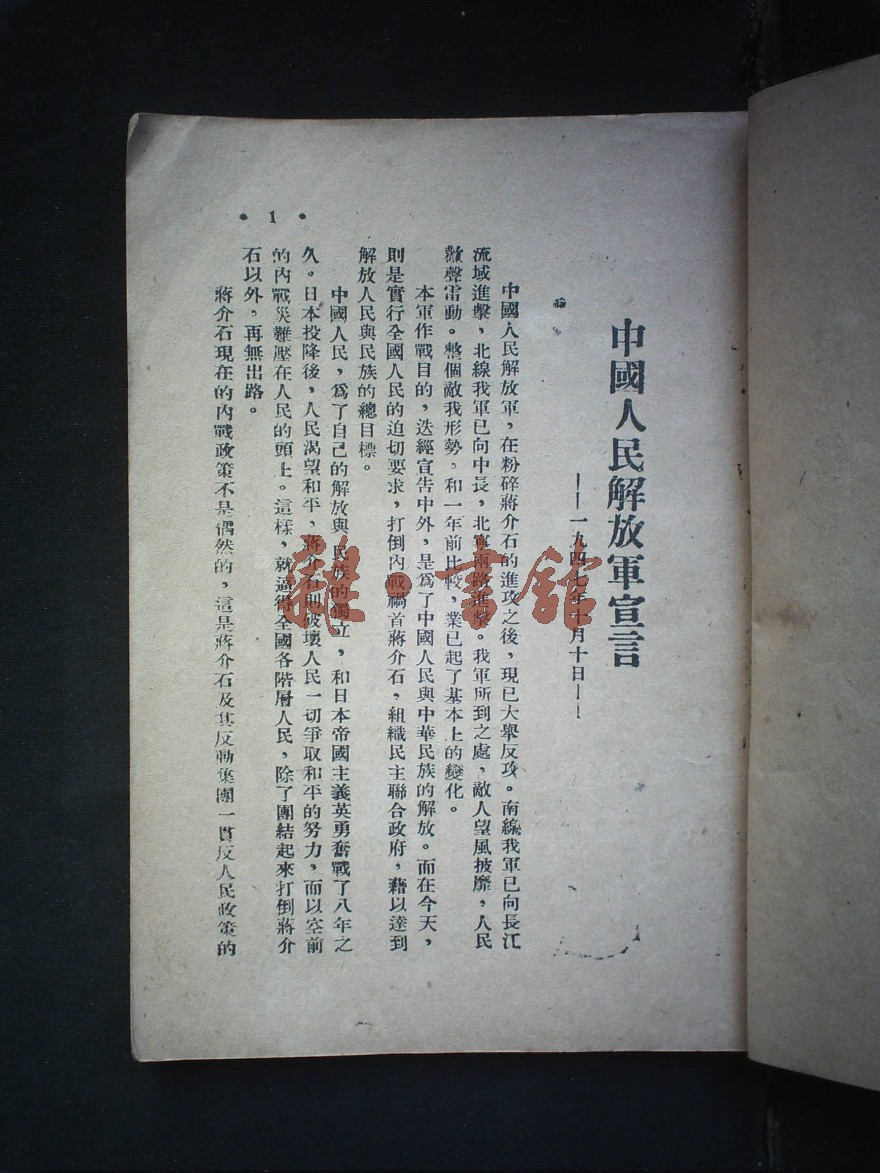 中國人民解放軍宣言
——一九四七年十月十日——
中國人民解放軍，在粉碎蔣介石的進攻之後，現已大舉反攻。南線我軍已向長江
流域進擊，北線我軍已向中長，北寧兩路進擊。我軍所到之處，敵人望風披靡，人民
歡聲雷動。整個敵我形勢，和一年前比較，業已起了基本上的變化。
本軍作戰目的，迭經宣告中外，是爲了中國人民與中華民族的解放。而在今天，
則是實行全國人民的迫切要求，打倒內戰禍首蔣介石，組織民主聯合政府，藉以達到
解放人民與民族的總目標。
中國人民，爲了自己的解放與民族的獨立，和日本帝國主義英勇奮戰了八年之
久。日本投降後，人民渴望和平，蔣介石則破壞人民一切爭取和平的努力，而以空前
的內戰災難壓在人民的頭上。這樣，就逼得全國各階層人民，除了團結起來打倒蔣介
石以外，再無出路。
蔣介石現在的內戰政策不是偶然的，這是蔣介石及其反動集團一貫反人民政策的
• 1 •
雜·書館